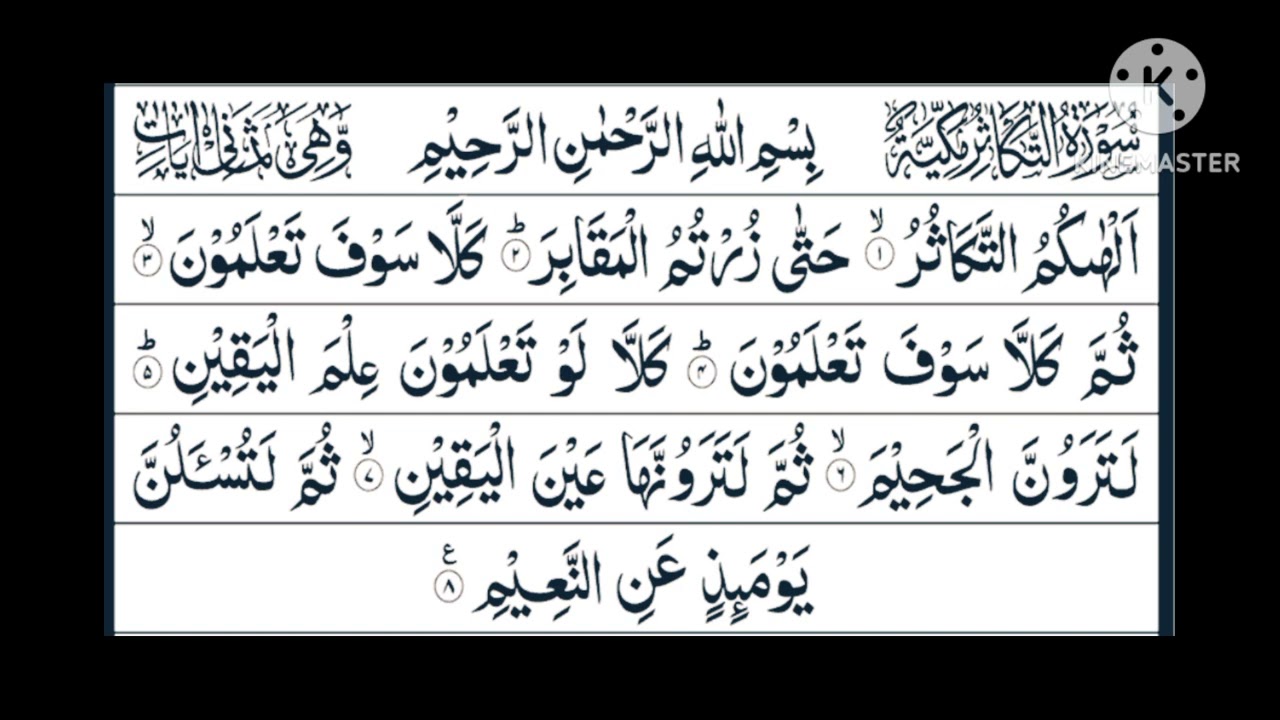 سُوْرَةُ التَّكَاثُرِ مَكِّيَّةٌ بِسْمِ اللهِ الرَّحْمٰنِ الرَّحِيْمِ وَّهِىَ ثَمَانِىْ اٰيَاتٍ
KINEMASTER
اَلْهٰىكُمُ التَّكَاثُرُ ۙ﴿۱﴾ حَتّٰى زُرْتُمُ الْمَقَابِرَ ؕ﴿۲﴾ كَلَّا سَوْفَ تَعْلَمُوْنَ ۙ﴿۳﴾
ثُمَّ كَلَّا سَوْفَ تَعْلَمُوْنَ ؕ﴿۴﴾ كَلَّا لَوْ تَعْلَمُوْنَ عِلْمَ الْيَقِيْنِ ؕ﴿۵﴾
لَتَرَوُنَّ الْجَحِيْمَ ۙ﴿۶﴾ ثُمَّ لَتَرَوُنَّهَا عَيْنَ الْيَقِيْنِ ۙ﴿۷﴾ ثُمَّ لَتُسْـَٔلُنَّ
يَوْمَئِذٍ عَنِ النَّعِيْمِ ﴿۸﴾ ع